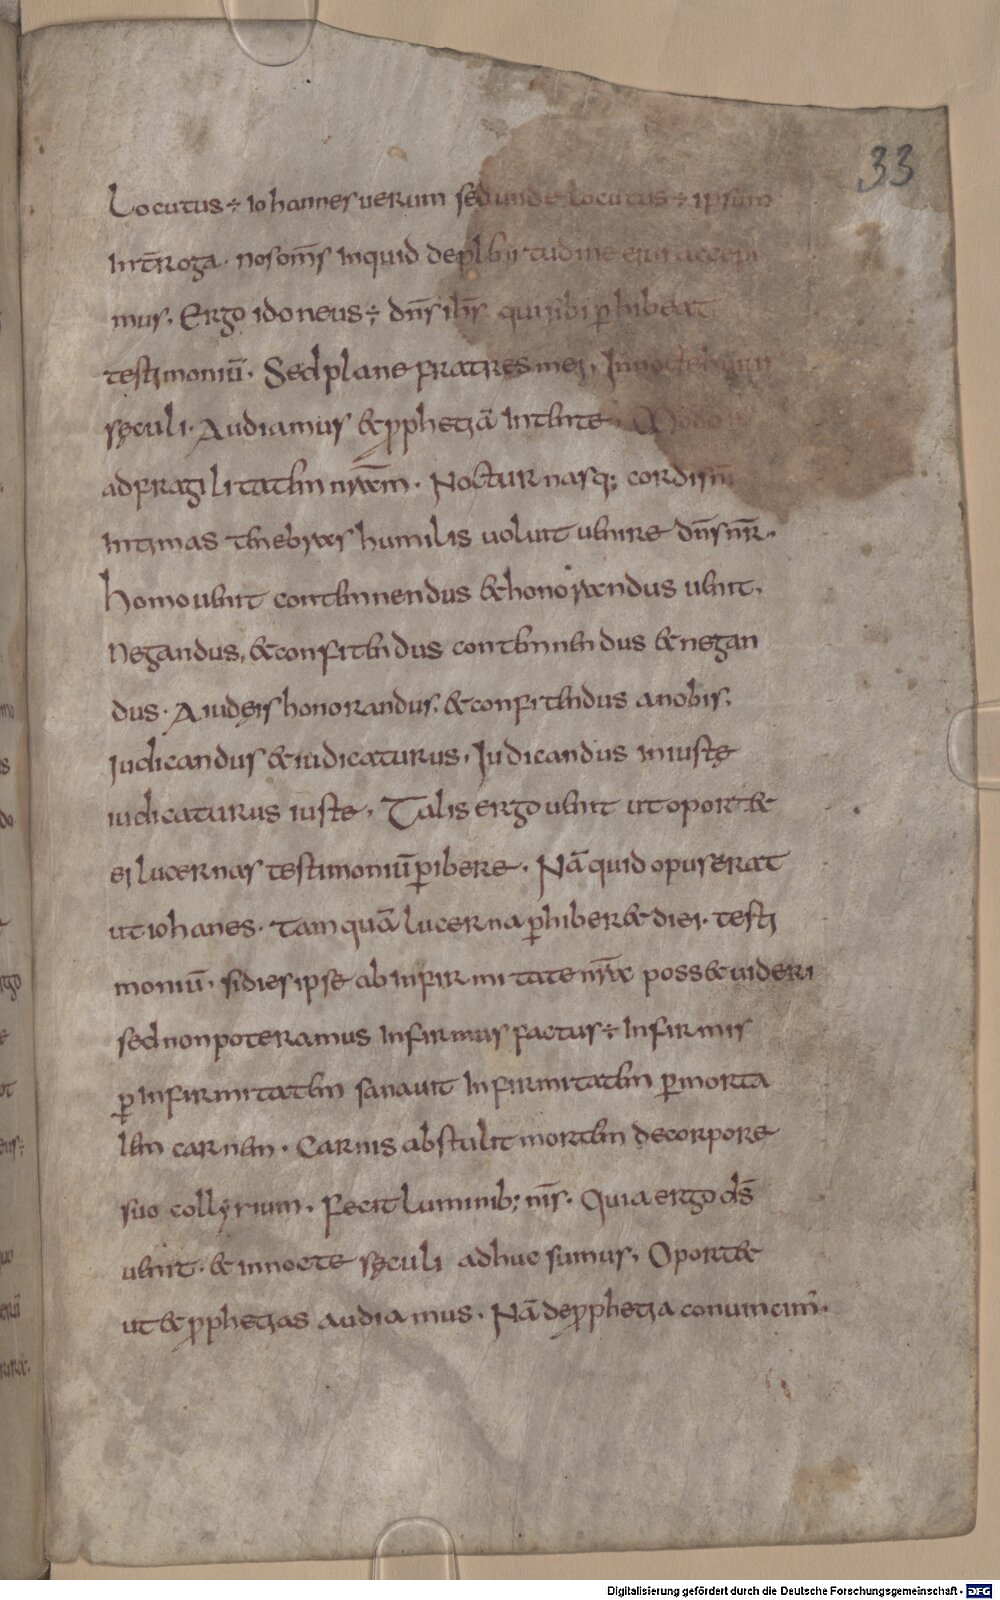 33
Locutus ÷ iohannes uerum sed unde locutus ÷ ipsum
Int̄roga · nos om̄s inquid de plenitudine eius accepi
mus. Ergo idoneus ÷ dn̄s ih̄s qui sibi ꝑhibeat
testimoniū. Sed plane fratres mei, In nocte huius
sęculi · Audiamus & ꝓphetiā intente. Modo
ad fragilitatem nr̄am. Nocturnasq; cordis
intimas tenebras humilis uoluit uenire dn̄s nr̄.
homo uenit contemnendus & honorandus uenit.
Negandus, & confitendus contemnendus & negan
dus · A iudęis honorandus, & confitendus a nobis.
Iudicandus & iudicaturus. Iudicandus iniustę
iudicaturus iuste. Talis ergo uenit ut oport&
ei lucernas testimoniū ꝑibere. Nā quid opus erat
ut iohanes · tamquā lucerna ꝑhiber& diei · testi
moniū · si dies ipse ab infirmitate nr̄a poss& uideri
sed non poteramus infirmus factus ÷ infirmis
ꝑ infirmitatem sanauit infirmitatem ꝑ morta
lem carnem. Carnis abstulit mortem de corpore
suo collyrium. Fecit luminib; nr̄s. Quia ergo dn̄s
uenit · & in nocte sęculi adhuc sumus. Oport&
ut & ꝓphetias audiamus. Nā de ꝓphetia conuincim̄.
Digitalisierung gefördert durch die Deutsche Forschungsgemeinschaft - DFG